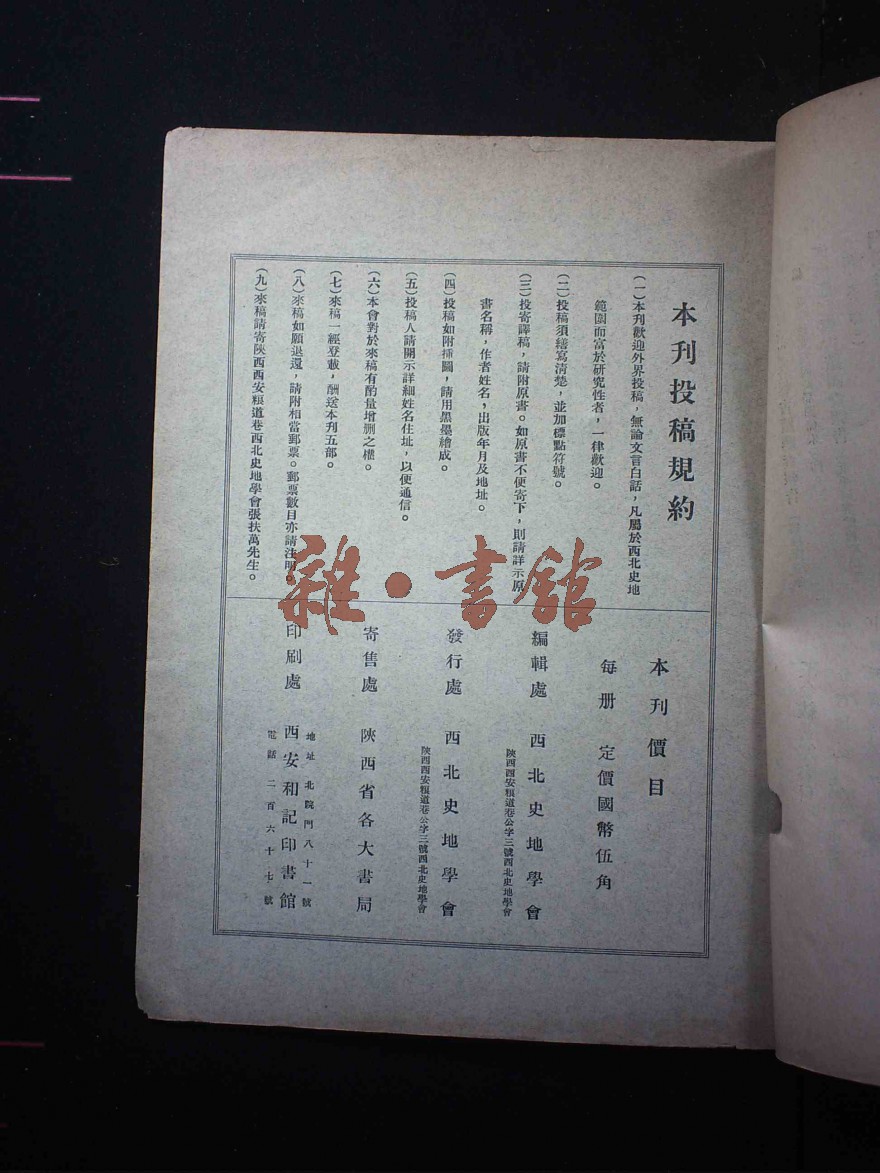 本刊投稿規約
（一）本刊歡迎外界投稿，無論文言白話，凡屬於西北史地
範圍而富於研究性者，一律歡迎。
（二）投稿須繕寫清楚，並加標點符號。
（三）投寄譯稿，請附原書。如原書不便寄下，則請詳示原
書名稱，作者姓名，出版年月及地址。
（四）投稿如附插圖，請用黑墨繪成。
（五）投稿人請開示詳細姓名住址，以便通信。
（六）本會對於來稿有酌量增删之權。
（七）來稿一經登載，酬送本刊五部。
（八）來稿如願退還，請附相當郵票。郵票數目亦請注明。
（九）來稿請寄陝西西安糧道巷西北史地學會張扶萬先生。
本刊價目
每册 定價國幣伍角
編輯處 西北史地學會
陝西西安糧道巷公字三號西北史地學會
發行處 西北史地學會
陝西西安糧道巷公字三號西北史地學會
寄售處 陝西省各大書局
印刷處 西安和記印書館
地址 北院門八十一號
電話 二百六十七號
雜·書館